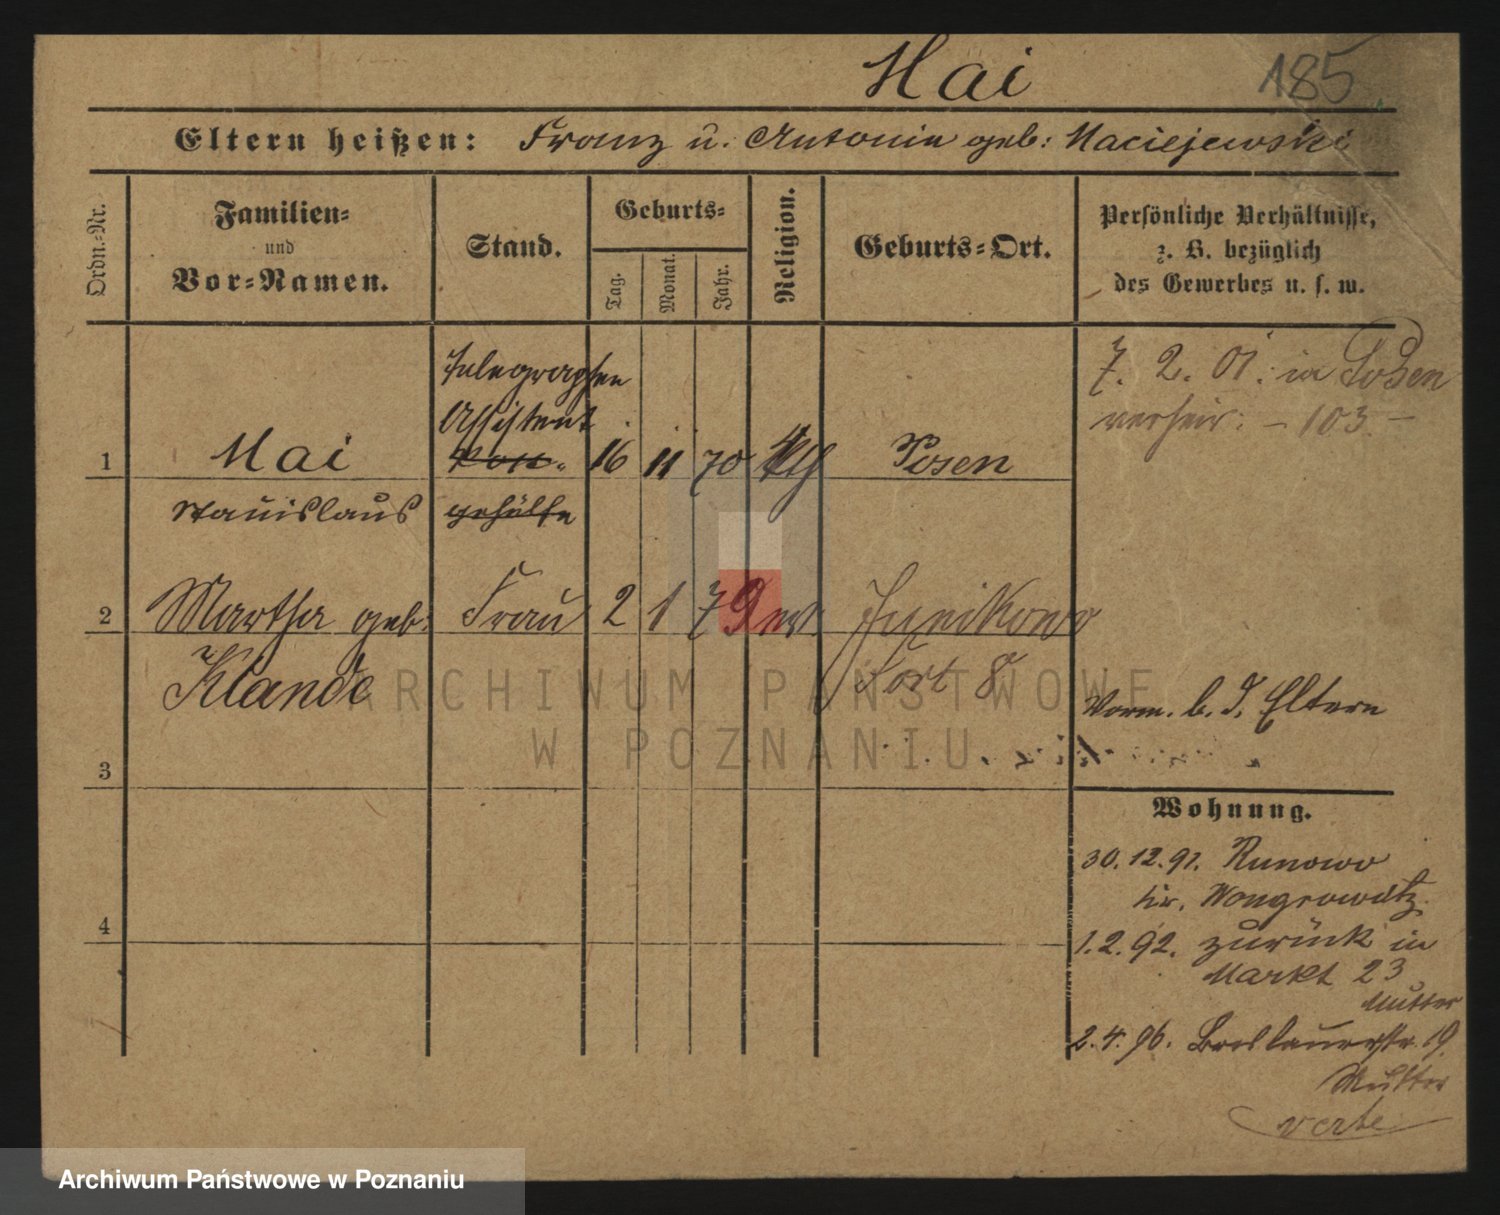 Mai 185
Eltern heißen: Franz u. Antonie geb: Maciejewski
Ordn.-Nr.
Familien-
und
Vor-Namen.
Stand.
Geburts-
Tag.
Monat.
Jahr.
Religion.
Geburts-Ort.
Persönliche Verhältnisse,
z. B. bezüglich
des Gewerbes u. s. w.
Telegraphen
Assistent
1 Mai 16 11 70 kth Posen
Stanislaus gehülfe
7. 2. 01. in Posen
verheir: - 103 -
2 Martha geb: Frau 2 1 79 ev. Junikowo
Klande Fort 8
Vorm. b. d. Eltern
3
Wohnung.
30.12.91. Runowo
kr. Wongrowitz
4
1.2.92. zurück in
Markt 23
Mutter
2.4.96. Breslauerstr. 19
Mutter
verte
ARCHIWUM PAŃSTWOWE
W POZNANIU
Archiwum Państwowe w Poznaniu